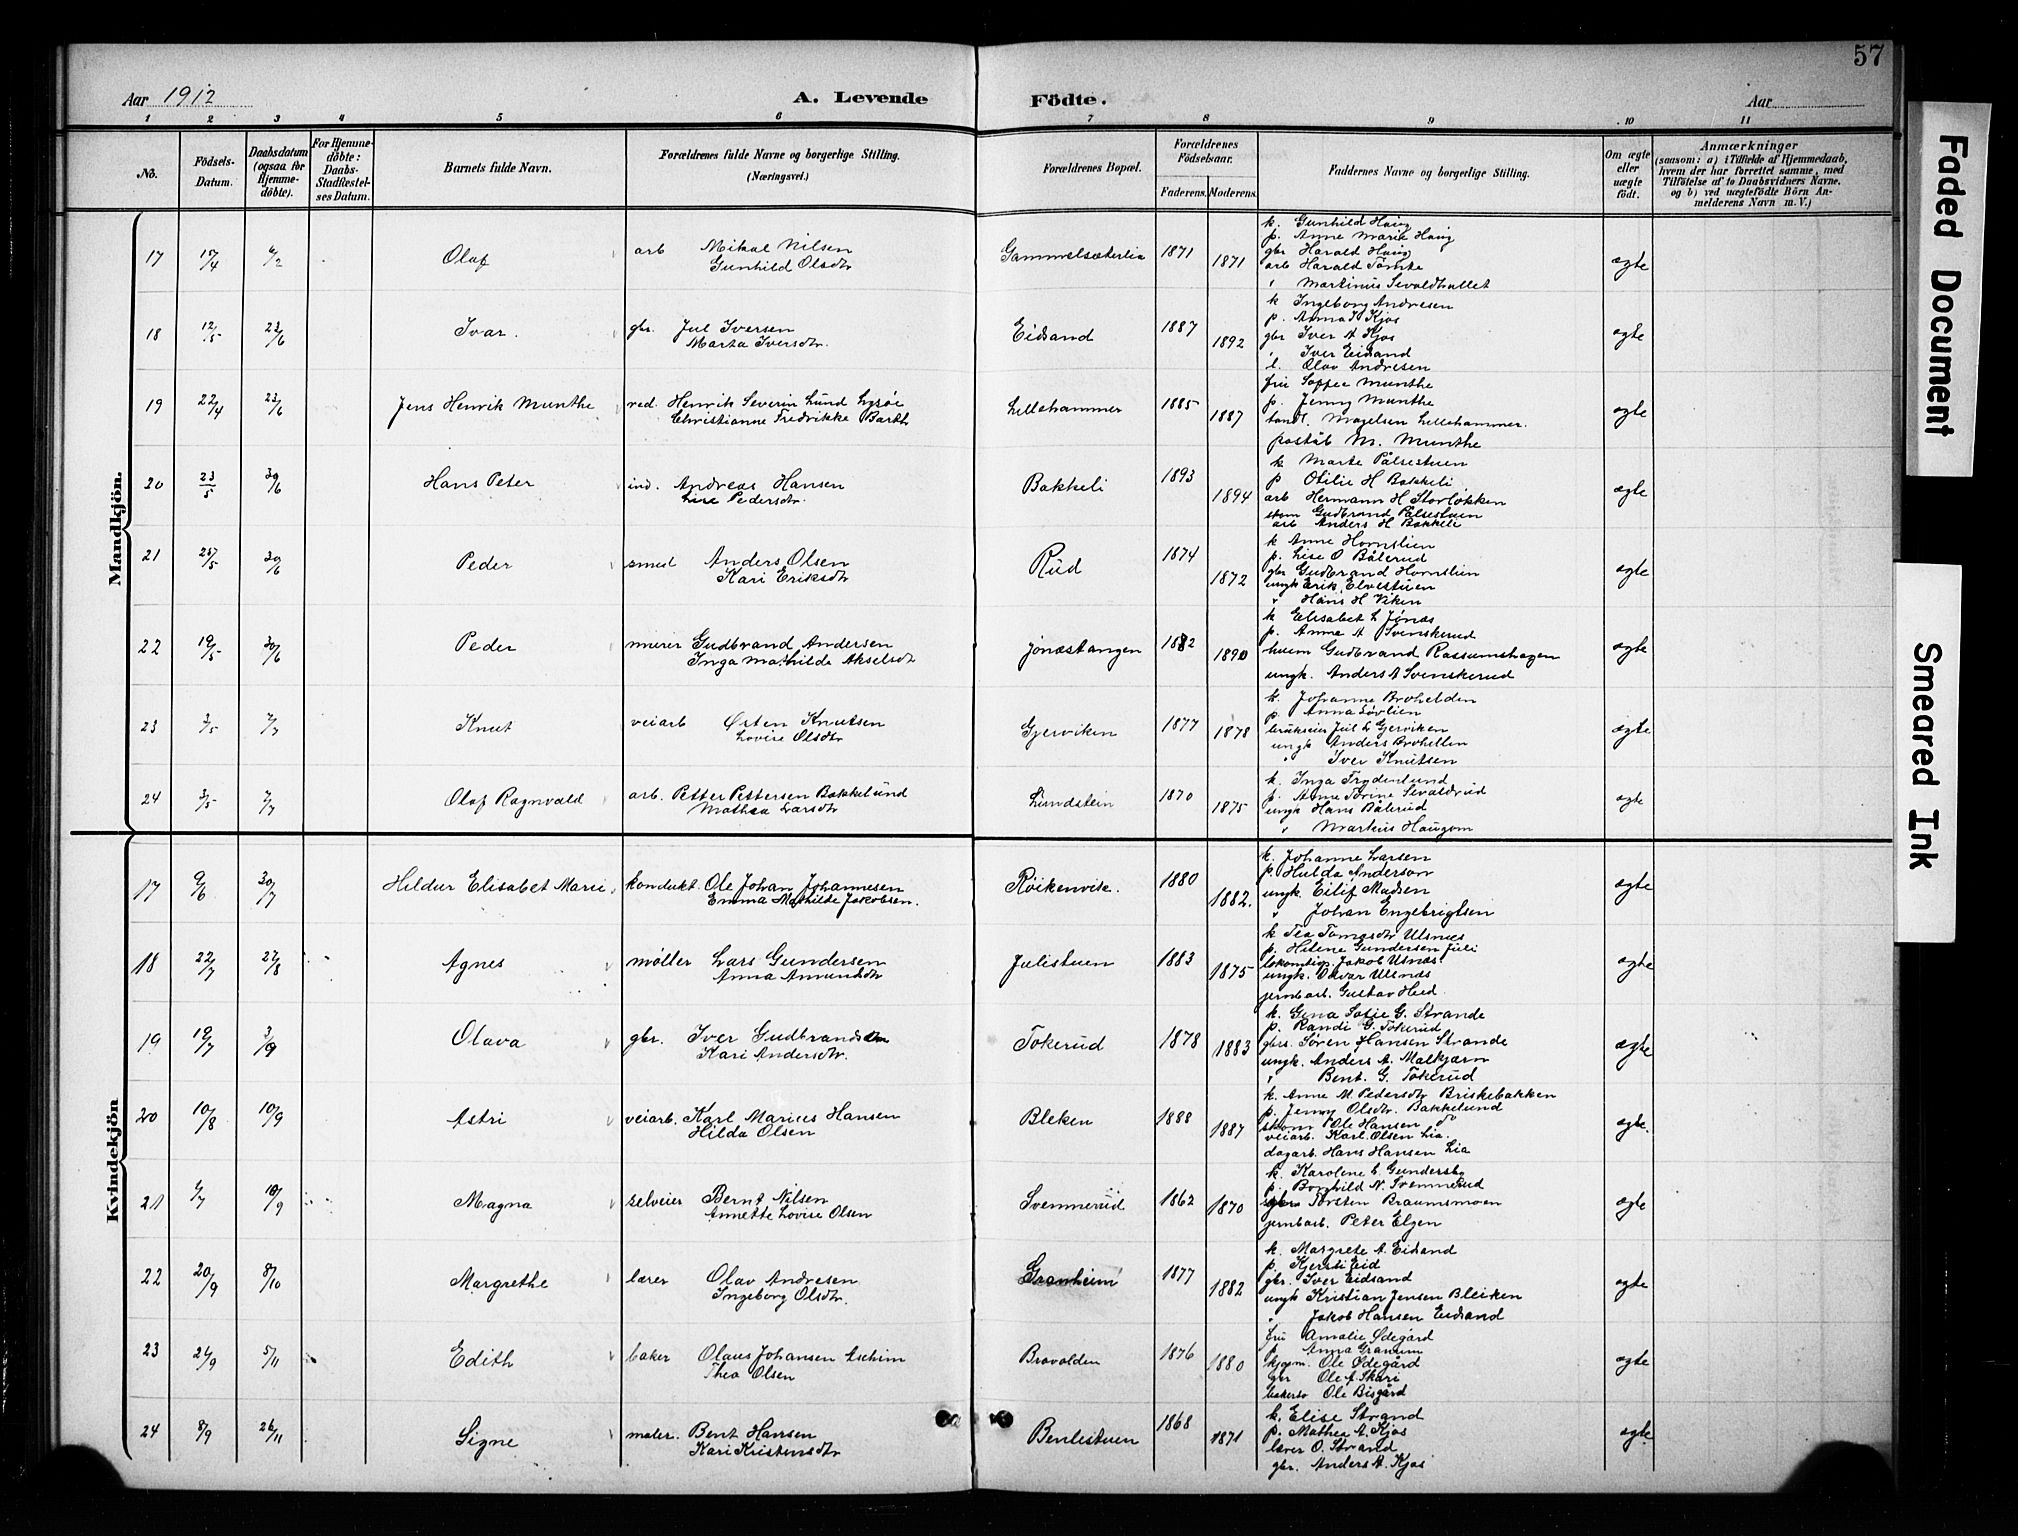 57
Aar 1912
A. Levende Födte.
Aar
1 2 3 4 5 6 7 8 9 10 11
No.
Födsels-Datum.
Daabsdatum (ogsaa for Hjemme-döbte).
For Hjemme-döbte: Daabs-Stadfæstel-ses Datum.
Barnets fulde Navn.
Forældrenes fulde Navne og borgerlige Stilling. (Næringsvei.)
Forældrenes Bopæl.
Forældrenes Födselsaar.
Faderens. Moderens.
Faddernes Navne og borgerlige Stilling.
Om ægte eller uægte født.
Anmærkninger
(saasom: a) i Tilfælde af Hjemmedaab,
hvem der har forrettet samme, med
Tilföielse af to Daabsvidners Navne.
og b) ved uægtefödte Börn An-
melderens Navn m. V.)
Mandkjön.
17 15/4 6/2 Olaf arb Mikal Nilsen
Gunhild Olsdtr
Gammelsæterlia 1871 1871
k. Gunhild Haug
p. Anne Marie Haug
gbr Harald Haug
arb Harald Tomte
" Martinius Sevaldhallet
ægte
18 12/5 23/6 Ivar. gbr. Jul Iversen
Marta Iversdtr.
Eidsand 1887 1892
k Ingeborg Andresen
p. Anna I Kjos
gbr Iver A Kjos
" Iver Eidsand
l. Olav Andresen
ægte
19 22/4 23/6 Jens Henrik Munthe red. Henrik Severin Lund Lysøe
Christianne Fredrikke Barth
Lillehammer 1885 1887
fru Soffee Munthe
p. Jenny Munthe
tandl. Magelsen Lillehammer.
poståb M. Munthe
ægte
20 23/5 30/6 Hans Peter ind. Andreas Hansen
Lise Pedersdtr.
Bakkeli 1893 1894
k Marte Pålsestuen
p Otilie H Bakkeli
arb Hermann H Storløkken
skom Gudbrand Pålsestuen
arb Anders H Bakkeli
ægte
21 25/5 30/6 Peder smed Anders Olsen
Kari Eriksdtr
Rud 1874 1872
k Anne Hornslien
p. Lise O Bålerud
gbr Gudbrand Hornslien
ungk Erik Elvestuen
" Hans H Viken
ægte
22 19/5 30/6 Peder murer Gudbrand Andersen
Inga Mathilde Akselsdtr
Jonastangen 1882 1890
k Elisabet L Jønas
p. Anne A Svenskerud
huem Gudbrand Rassumshagen
ungk. Anders A Svenskerud
ægte
23 3/5 7/7 Knut veiarb Østen Knutsen
Lovise Olsdtr
Gjerviken 1877 1878
k. Johanne Brohelden
p. Anna Løvlien
brukseier Jul L Gjerviken
ungk Anders Brohellen
" Iver Knutsen
ægte
24 3/5 7/7 Olaf Ragnvald arb. Petter Pettersen Bakkelund
Mathea Larsdtr
Lundstein 1870 1875
k. Inga Frydenlund
p. Anne Torine Sevaldrud
ungk Hans Bålerud
" Markus Haugom
ægte
Kvindekjön
17 9/6 30/7 Hildur Elisabet Marie kondukt. Ole Johan Johannesen
Emma Mathilde Jakobsen.
Røikenvik. 1880 1882.
k. Johanne Larsen
p. Hulda Anderson
ungk. Eilif Madsen
" Johan Engebrigtsen
ægte
18 22/7 27/8 Agnes møller Lars Gundersen
Anna Amundsdtr
Julistuen 1883 1875
k Tea Tomasdtr Ulsnæs
p. Helene Gundersen Juli
Jakob Ulsnæs
ungk. Olvar Ulsnæs
jernbarb. Gustav Heid.
ægte
19 19/7 3/9 Olava gbr. Iver Gudbrandsen
Kari Andersdtr.
Tokerud 1878 1883
k. Gina Sofie G. Strande
p. Randi G. Tokerud
gbrs. Søren Hansen Strande
ungk. Anders A. Malkjærn
" Bent. G. Tokerud
ægte
20 10/8 10/9 Astri veiarb. Karl Marius Hansen
Hilda Olsen
Bleken 1888 1887
k. Anne M. Pedersdtr Briskebakken
p. Jenny Olsdtr. Bakkelund
skom Ole Hansen do
veiarb. Karl Olsen Lia.
dagarb. Hans Hansen Lia
ægte.
21 6/7 18/9 Magna selveier Bernt Nilsen
Annette Lovise Olsen
Svennerud 1862 1870
k. Karolene L. Gundersby
p. Bonhild N. Svennerud
Torsten Braumsmoen
jernbarb. Peter Elgen
ægte
22 20/9 8/10 Margrethe lærer Olav Andresen
Ingeborg Olsdtr.
Granheim 1877 1882
k. Margrete A. Eidsand
p. Kjersti Eid
gbr. Iver Eidsand
ungk Kristian Jensen Bleiken
" Jakob Hansen Eidsand
ægte
23 21/9 5/11 Edith baker Olaus Johansen Aschim
Thea Olsen
Bravolden 1876 1880
fru Amalie Ødegård
p Anna Granum
kjøpm. Ole Ødegård
gbr Ole A Skari
bakersv Ole Bisgård
ægte
24 8/9 26/11 Signe maler. Bent Hansen
Kari Kristensdtr
Benlistuen 1868 1871
k. Elise Strand
p. Mathea A. Kjos
lærer O. Strand
gbr. Anders A. Kjos
ægte
Faded Document
Smeared Ink